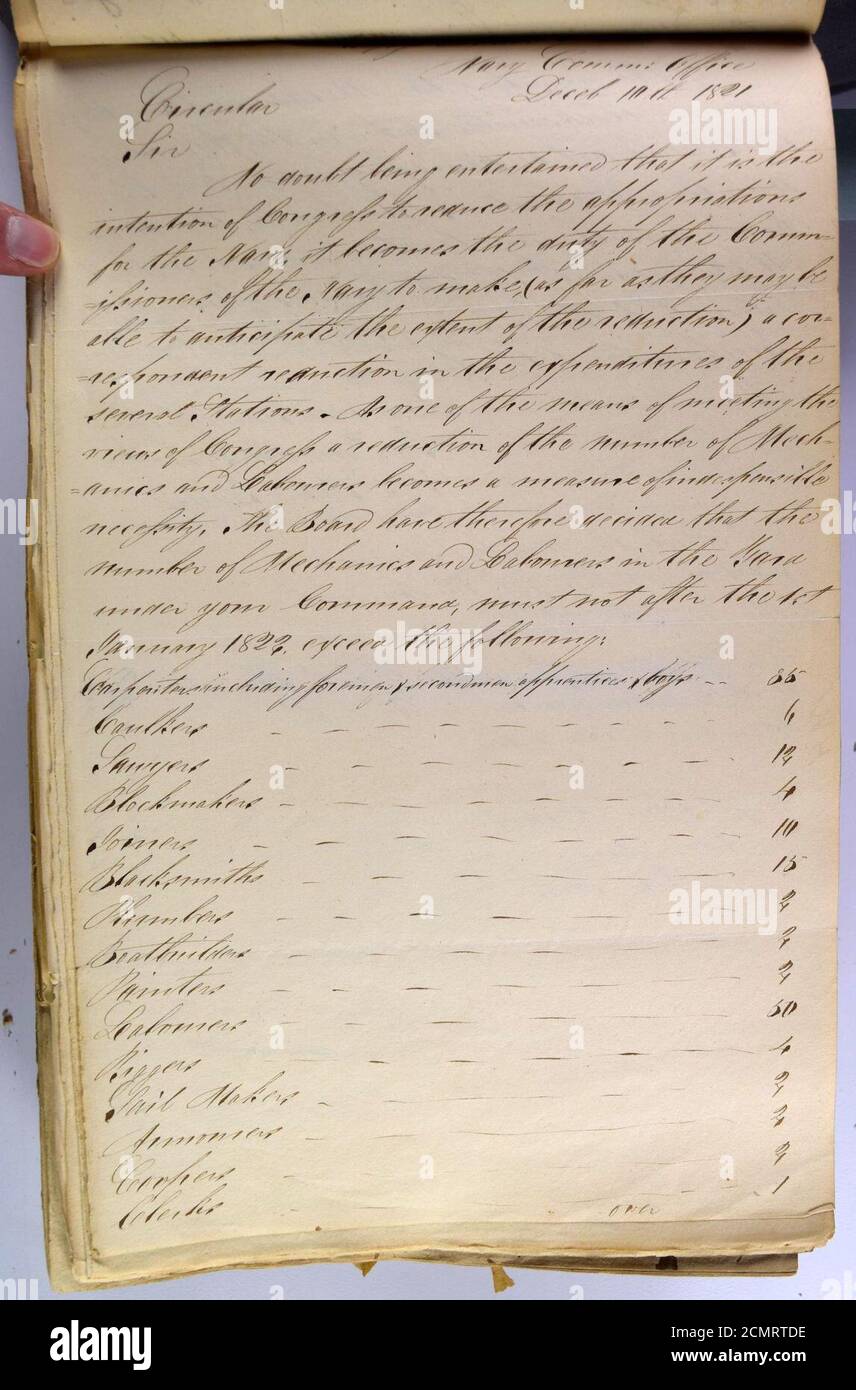 Navy Comm: Office
Deceb 10th 1821
Circular
Sir
No doubt being entertained that it is the
intention of Congress to reduce the appropriations
for the Navy, it becomes the duty of the Comm=
=issioners of the Navy to make, (as far as they may be
able to anticipate the extent of the reduction) a cor=
=respondent reduction in the expenditures of the
several Stations. As one of the means of meeting the
views of Congress a reduction of the number of Mech=
=anics and Labourers becomes a measure of indespensible
necessity. The Board have therefore decided that the
number of Mechanics and Labourers in the Yard
under your Command, must not after the 1st
January 1822, exceed the following:
Carpenters including foremen & secondmen apprentices & boys -- 35
Caulkers - - - - - - - 6
Sawyers - - - - - - - 12
Blockmakers - - - - - - - 4
Joiners - - - - - - - 10
Blacksmiths - - - - - - - 15
Plumbers - - - - - - - 2
Boatbuilders - - - - - - - 2
Painters - - - - - - - 2
Labourers - - - - - - - 50
Riggers - - - - - - - 4
Sail Makers - - - - - - 2
Armourers - - - - - - 2
Coopers - - - - - - 2
Clerks - - - - - 1
over
alamy
alamy
alamy
alamy
Image ID: 2CMRTDE
www.alamy.com